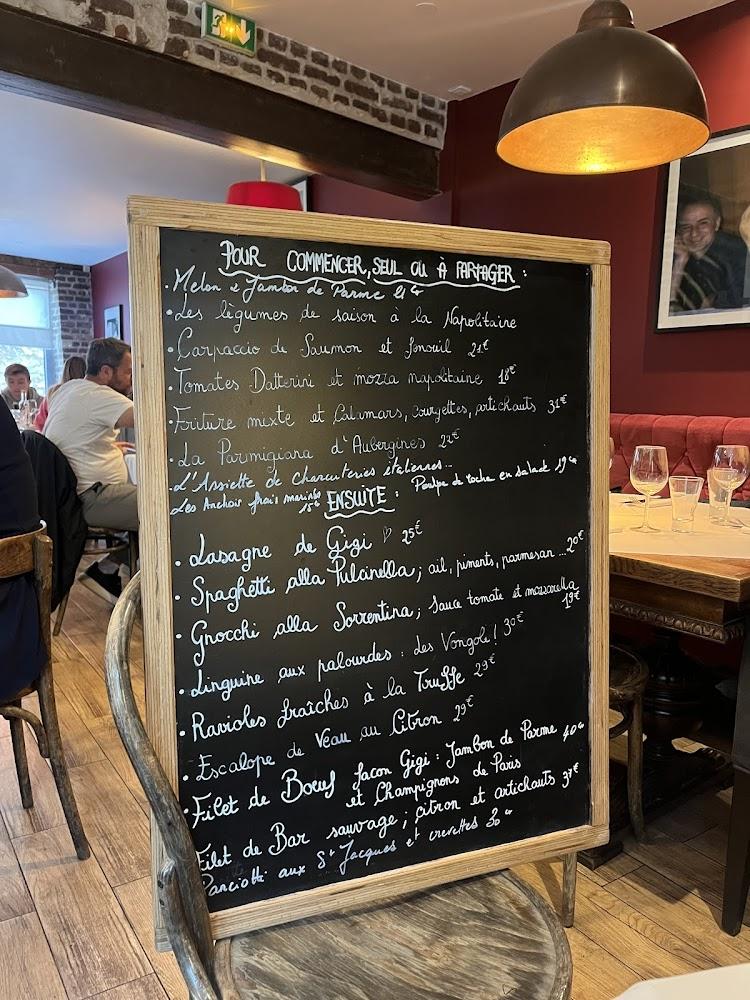 POUR COMMENCER, SEUL OU À PARTAGER :
· Melon & Jambon de Parme 21€
· Les légumes de saison à la Napolitaine
· Carpaccio de Saumon et fenouil 21€
· Tomates Datterini et mozza napolitaine 18€
· Friture mixte et Calamars, courgettes, artichauts 31€
· La Parmigiana d'Aubergines 22€
· L'Assiette de Charcuteries italiennes...
Les Anchois frais marinés 15€
Poulpe de roche en salade 19€
ENSUITE :
· Lasagne de Gigi ♡ 25€
· Spaghetti alla Pulcinella ; ail, piments, parmesan ... 20€
· Gnocchi alla Sorrentina ; sauce tomate et mozzarella 19€
· Linguine aux palourdes : des Vongole ! 30€
· Ravioles fraîches à la Truffe 29€
· Escalope de Veau au Citron 29€
· Filet de Boeuf façon Gigi : Jambon de Parme 40€
et Champignons de Paris
Filet de Bar sauvage ; citron et artichauts 37€
aux St Jacques et crevettes 30€